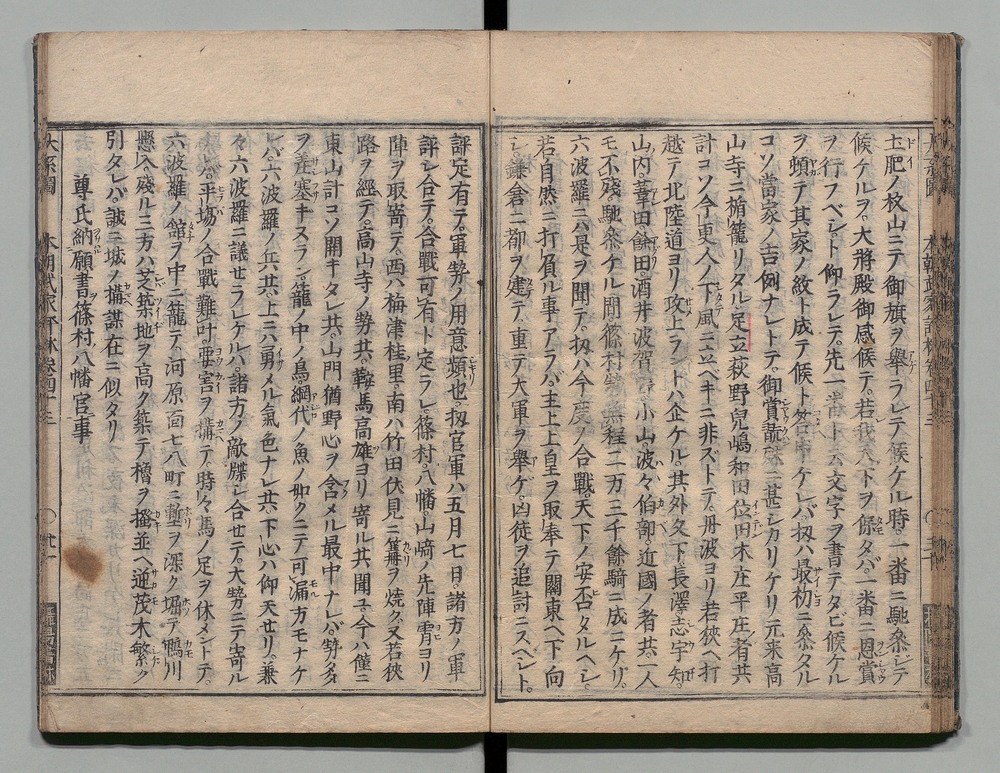 土肥ノ杉山ニテ御旗ヲ舉ラレテ候ケル時。一番ニ馳參シテ
候ケルヲ。大將殿御感候テ。若我天下ヲ保タバ。一番ニ恩賞
ヲ行フベシト仰ラレテ。先一番ト云文字ヲ書テタビ候ケル
ヲ頓テ其家ノ紋ト成テ候ト答申ケレバ。扨ハ最初ニ參タル
コソ當家ノ吉例ナレトテ。御賞翫殊ニ甚シカリケリ。元来高
山寺ニ楯籠リタル足立荻野兒嶋和田位田本庄平庄者共
計コソ今更人ノ下風ニ立ベキニ非ズトテ。丹波ヨリ若狹ヘ打
越テ北陸道ヨリ攻上ラントハ企ケル。其外久下長澤。志宇知。
山内。葦田。餘田。酒井。波賀野。小山。波々伯部。近國ノ者共。一人
モ不殘。馳參ケル間。篠村勢無程二万三千餘騎ニ成ニケリ。
六波羅ニハ是ヲ聞テ。扨ハ今度ノ合戰。天下ノ安否タルヘシ。
若自然ニ打負ル事アラバ。主上上皇ヲ取奉テ關東ヘ下向
シ。鎌倉ニ都ヲ建テ。重テ大軍ヲ舉ゲ。凶徒ヲ追討ニスベシト。
評定有テ。軍勢ノ用意頻也。扨官軍ハ五月七日。諸方ノ軍
評シ合テ。合戰可有ト定ラレ。篠村。八幡。山﨑ノ先陣霄ヨリ
陣ヲ取寄テ。西ハ梅津桂里。南ハ竹田伏見ニ篝ヲ燒ク。又若狹
路ヲ經テ。高山寺ノ勢共。鞍馬高雄ヨリ寄ル共聞ユ。今ハ僅ニ
東山計コソ開キタレ共。山門猶野心ヲ含メル最中ナレバ。勢多
ヲ差塞キヌラン。籠ノ中ノ鳥。網代ノ魚ノ如クニテ可漏方モナケ
レバ。六波羅ノ兵共。上ニハ勇メル氣色ナレ共。下心ハ仰天セリ。兼
々六波羅ニ議セラレケルハ。諸方ノ敵牒シ合セテ。大勢ニテ寄ル
ナレ。平場ノ合戰難叶。要害ヲ構テ。時々馬ノ足ヲ休メントテ。
六波羅ノ館ヲ中ニ籠テ。河原面七八町ニ塹ヲ深ク堀テ鴨川
懸入。殘ル三方ハ芝築地ヲ高ク築テ櫓ヲ搔並ヘ逆茂木繁ク
引タレバ。誠ニ城ノ構謀在ニ似タリ
尊氏納願書篠村八幡宮事